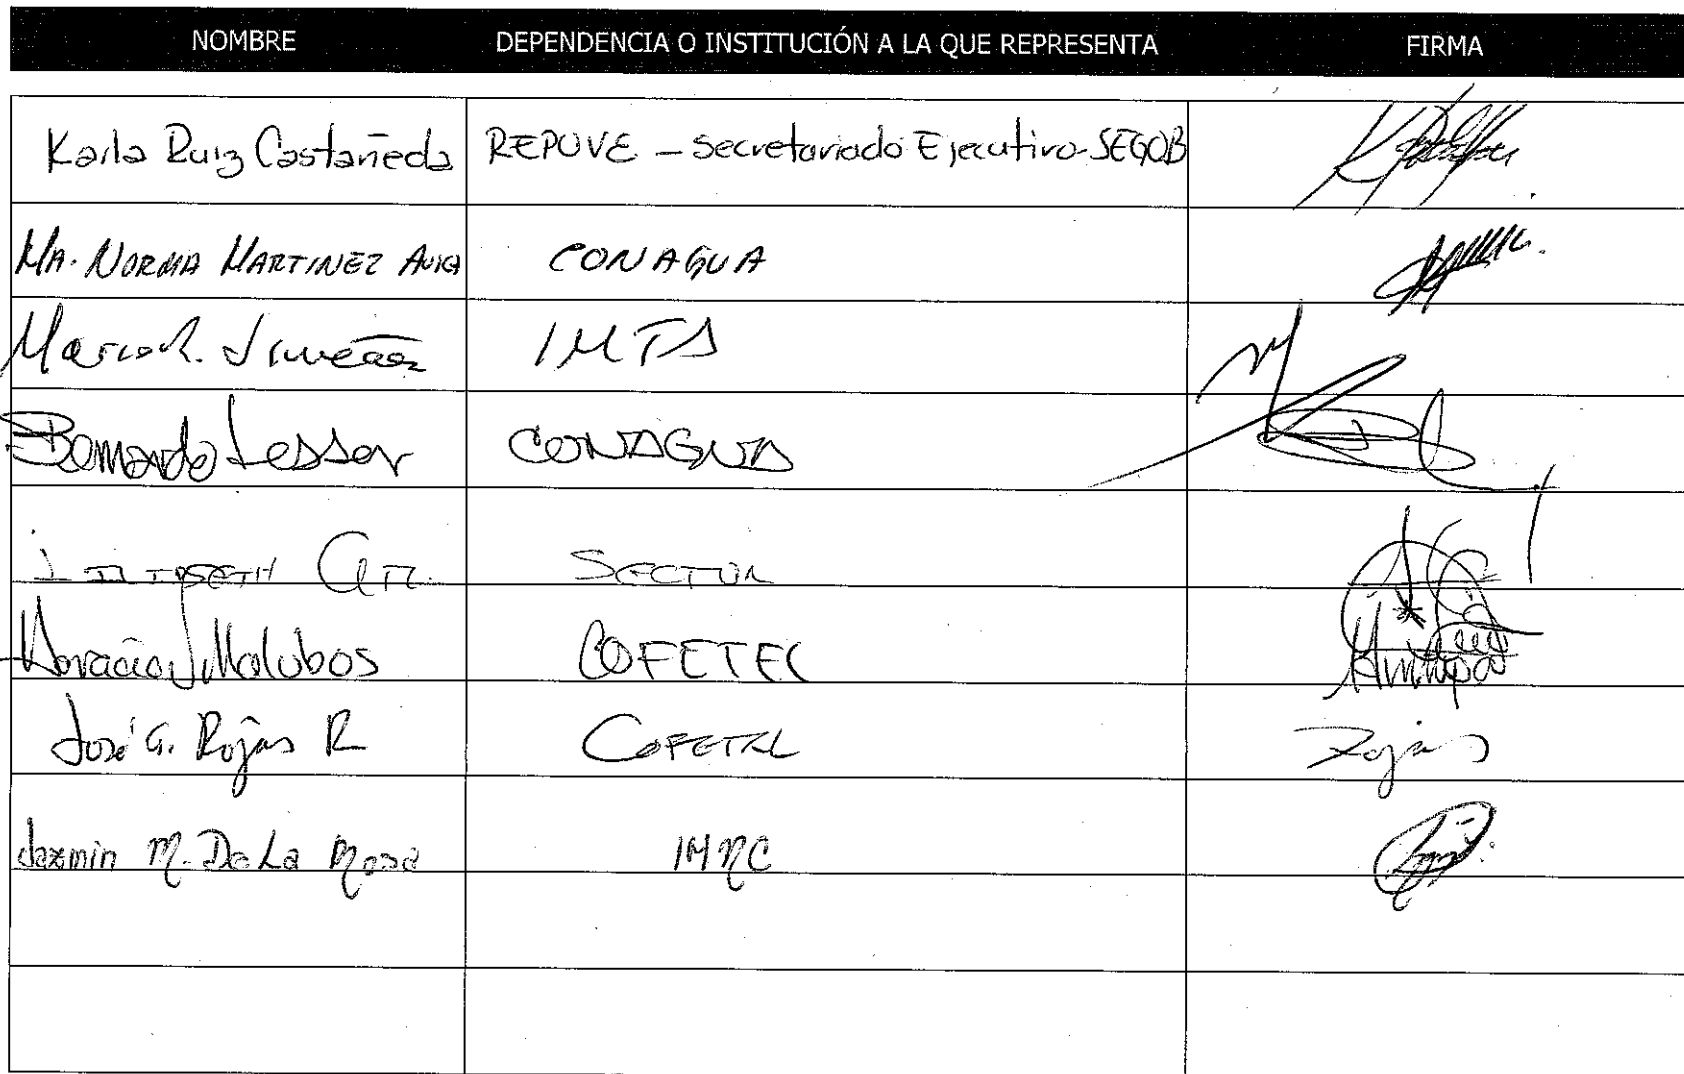 NOMBRE DEPENDENCIA O INSTITUCIÓN A LA QUE REPRESENTA FIRMA
Karla Ruiz Castañeda REPUVE - Secretariado Ejecutivo-SEGOB
MA. NORMA MARTINEZ CONAGUA
Mario R. IMTA
Bernardo Lesser CONAGUA
SECTUR
Horacio COFETEL
José G. Rojas R COFETEL Rojas
Jazmin M. De La Rosa IMNC